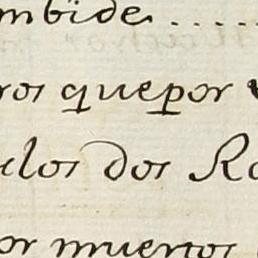 mbide.....
ros que por
elos dos Ro
or muertos